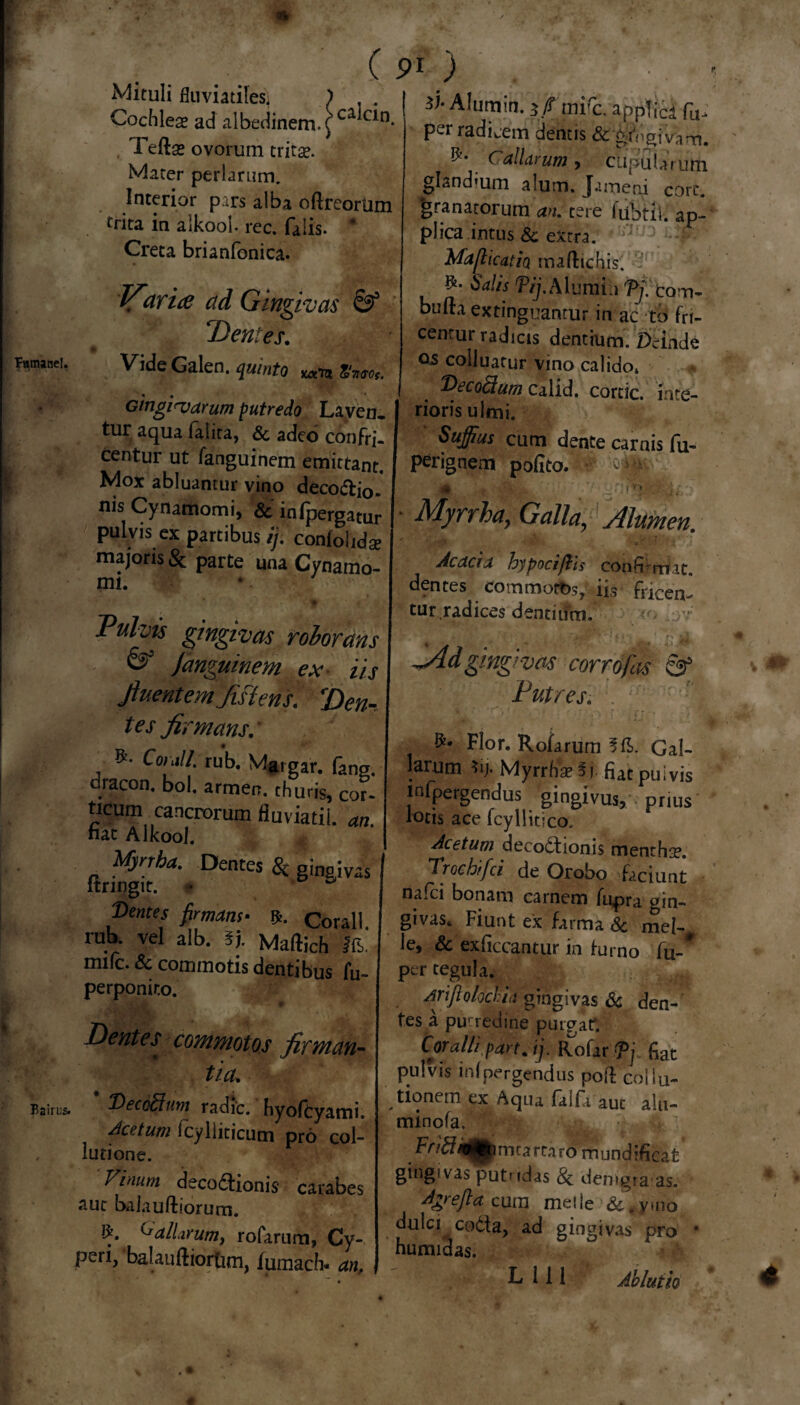 ( 91 )
Mituli fluviatiles. }
Cochleæ ad albedinem. } calcin.
Testæ ovorum tritæ.
Mater perlarum.
Interior pars alba ostreorum
trita in alkool. rec. salis.
Creta briansonica.
Variæ ad Gingivas &
Dentes.
Fumanel.
Vide Galen. quinto κατα τόπος.
Gingivarum putredo Laven-
tur aqua salita, & adeo confri-
centur ut sanguinem emittant.
Mox abluantur vino decoctio-
nis Cynamomi, & inspergatur
pulvis ex partibus ij. consolidæ
majoris & parte una Cynamo-
mi.
Pulvis gingivas roborans
& sanguinem ex iis
fluentem sistens. Den-
tes firmans.
℞. Corall. rub. Margar. sang.
dracon. bol. armen. thuris, cor-
ticum cancrorum fluviatil. an.
fiat Alkool.
Myrrha. Dentes & gingivas
stringit.
Dentes firmans. ℞. Corall.
rub. vel alb. ℥j. Mastich ℥ß.
misc. & commotis dentibus su-
perponito.
Dentes commotos firman-
tia.
Bairus.
Decoctum radic. hyoscyami.
Acetum scylliticum pro col-
lutione.
Vinum decoctionis carabes
aut balaustiorum.
℞. Gallarum, rosarum, Cy-
peri, balaustiorum, sumach. an.
ʒj. Alumin. ʒß misc. applica su-
per radicem dentis & gingivam.
℞. Gallarum, cupularum
glandium alum. Jameni cort.
granatorum an. tere subtil. ap-
plica intus & extra.
Masticatio mastichis.
℞. Salis Pij. Alumi. Pj. com-
busta extinguantur in aceto fri-
centur radicis dentium. Deinde
os colluatur vino calido.
Decoctum calid. cortic. inte-
rioris ulmi.
Suffius cum dente carnis su-
perignem posito.
Myrrha, Galla, Alumen.
Acacia hypocistis confirmat.
dentes commotos, iis fricen-
tur radices dentium.
Ad gingivas corrosas &
Putres.
℞. Flor. Rosarum ℥ß. Gal-
larum ℥ij. Myrrhæ ℥j fiat pulvis
inspergendus gingivus, prius
lotis ace scyllitico.
Acetum decoctionis menthæ.
Trochisci de Orobo faciunt
nasci bonam carnem supra gin-
givas. Fiunt ex farma & mel-
le, & exsiccantur in furno su-
per tegula.
Aristolochia gingivas & den-
tes à putredine purgat.
Coralli part. ij. Rosar Pj fiat
pulvis inspergendus post collu-
tionem ex Aqua salsa aut alu-
minosa.
mundificat
gingivas putridas & denigratas.
Agresta cum melle & vino
dulci cocta, ad gingivas pro
humidas.
Llll Ablutio